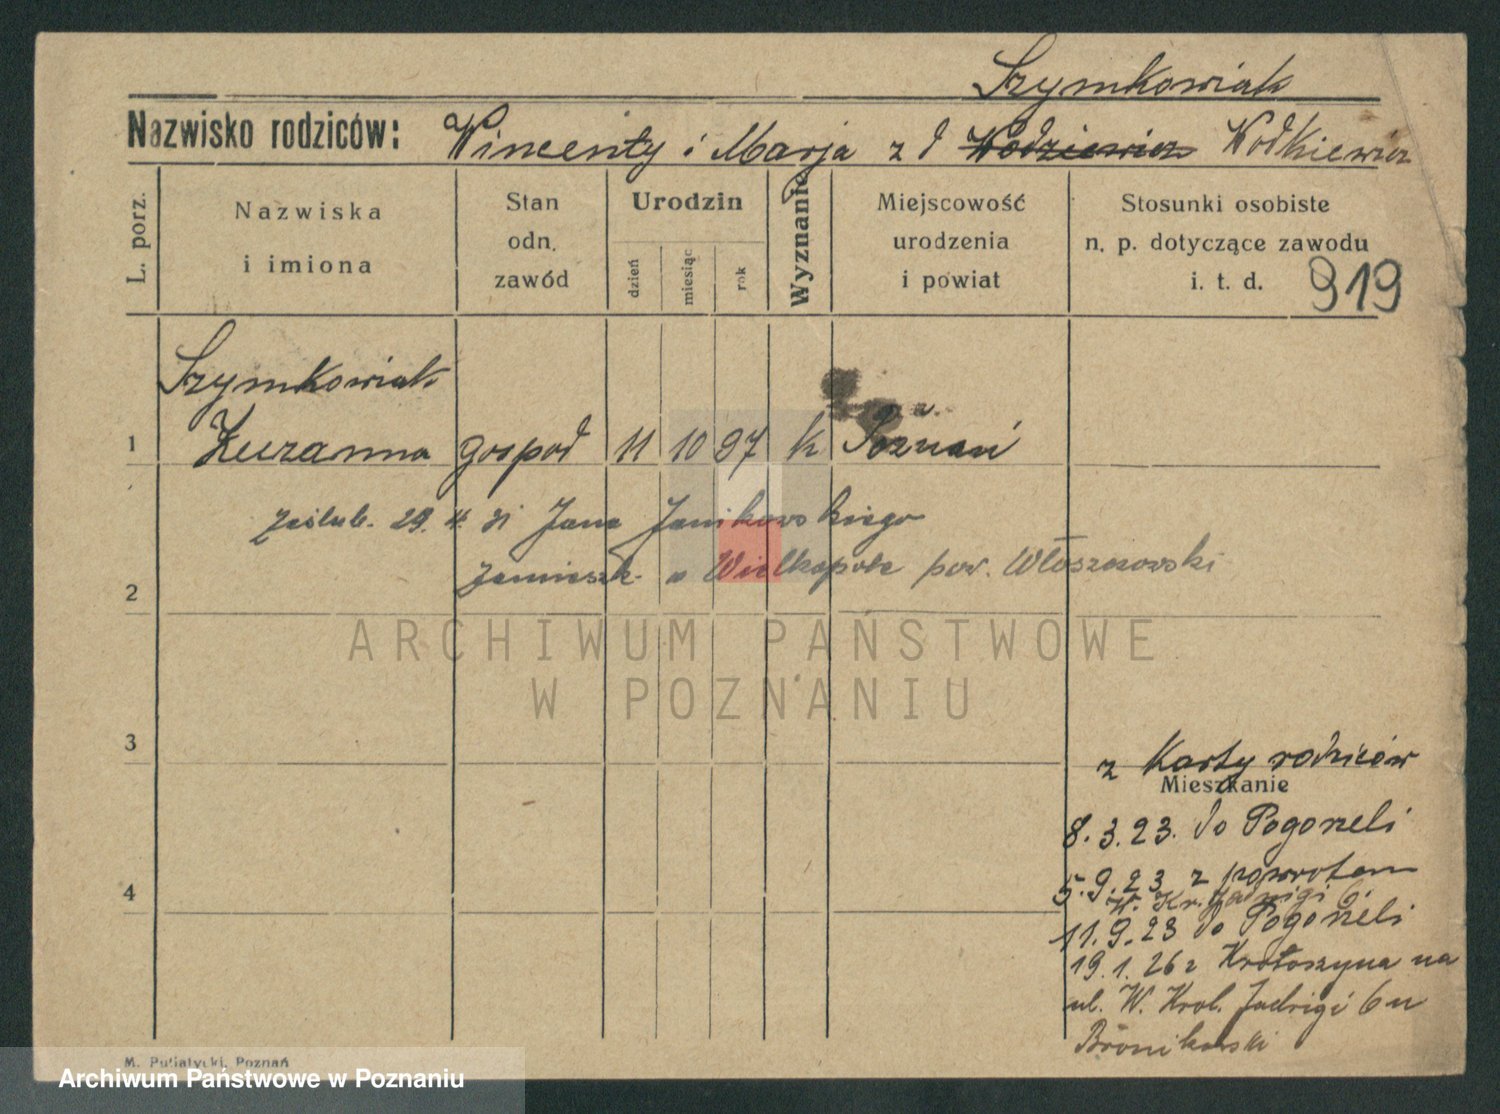 Szymkowiak
Nazwisko rodziców: Wincenty i Marja z d Wodziewicz Wodkiewicz
L. porz.
Nazwiska
i imiona
Stan
odn.
zawód
Urodzin
dzień
miesiąc
rok
Wyznanie
Miejscowość
urodzenia
i powiat
Stosunki osobiste
n. p. dotyczące zawodu
i. t. d.
919
Szymkowiak
1 Zuzanna gospod 11 10 97 k Poznań
zaślub. 29. 4. 31 Jana Janikowskiego
zamieszk. w Wielkopole pow. Włoszczowski
2
ARCHIWUM PAŃSTWOWE
W POZNANIU
3
z Karty rodziców
Mieszkanie
8.3.23. do Pogorzeli
5.9.23 z powrotem
W. Kr. Jadwigi 6.
4
11.9.23 do Pogorzeli
19.1.26 z Krotoszyna na
ul. W. Krol. Jadwigi 6 u
Bronikowski
M. Putiatycki, Poznań
Archiwum Państwowe w Poznaniu